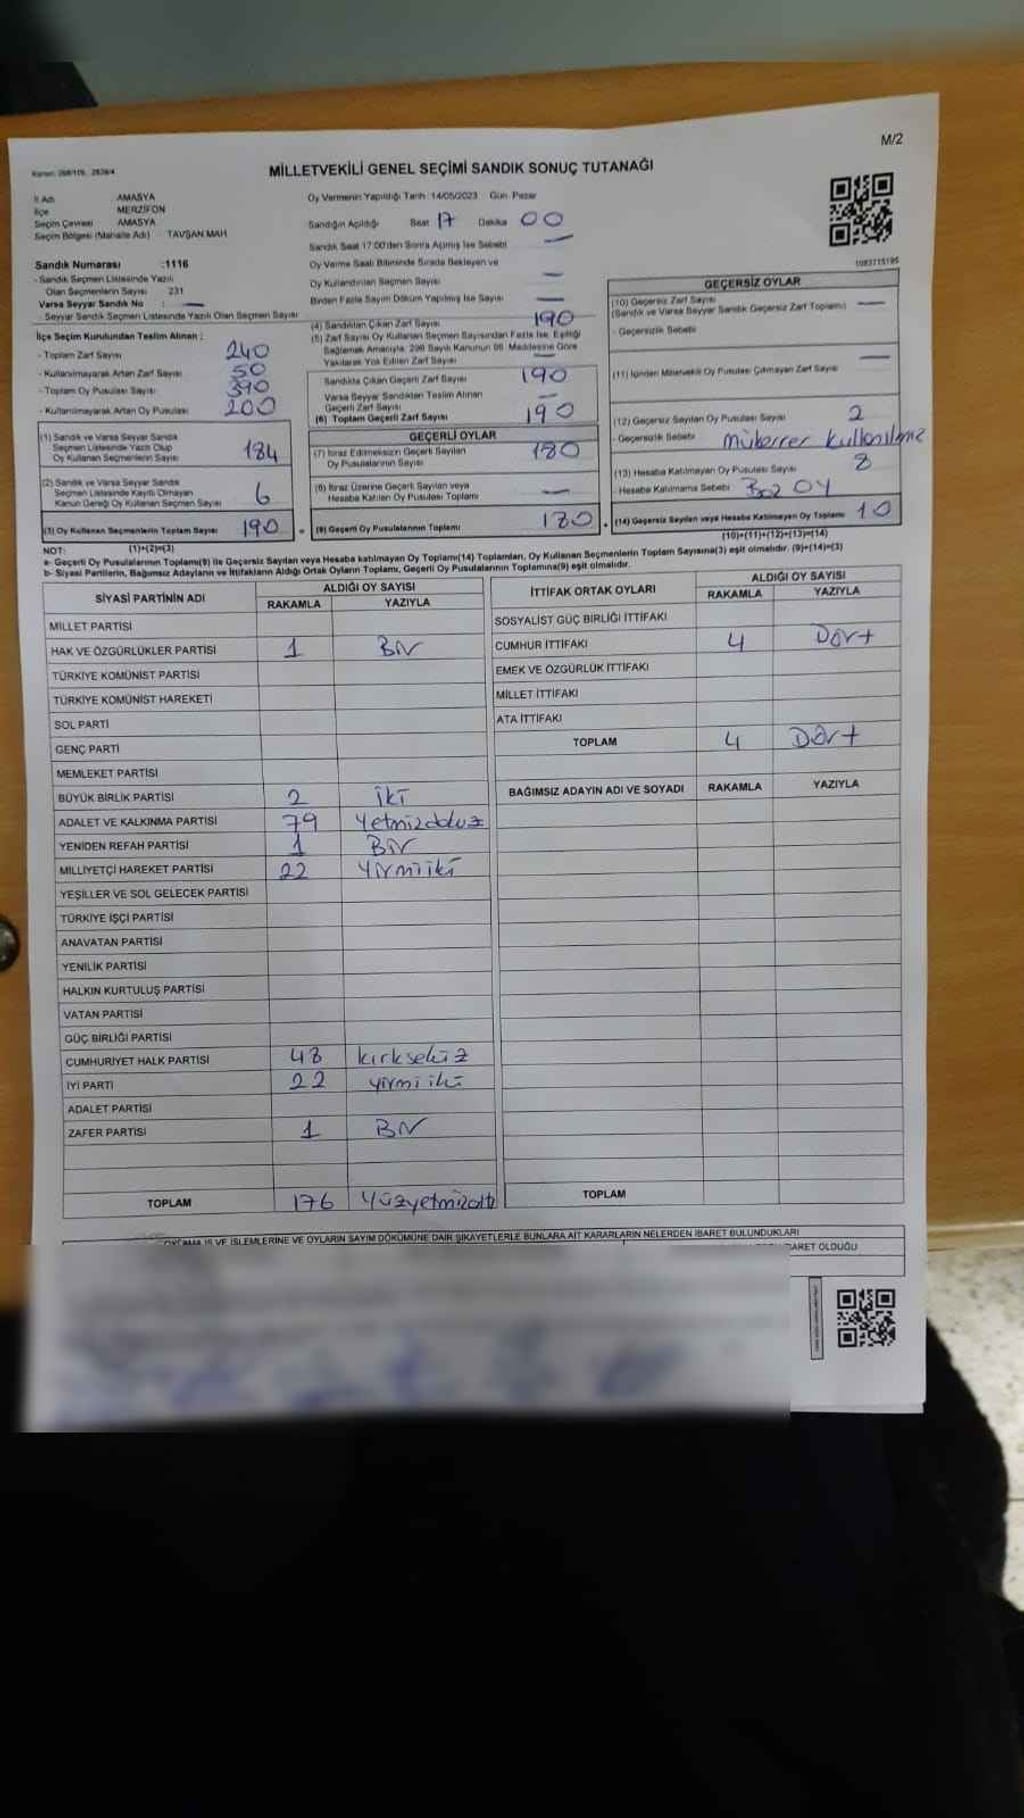 M/2
MİLLETVEKİLİ GENEL SEÇİMİ SANDIK SONUÇ TUTANAĞI
İl Adı AMASYA
İlçe MERZİFON
Seçim Çevresi AMASYA
Seçim Bölgesi (Mahalle Adı) TAVŞAN MAH.
Oy Vermenin Yapıldığı Tarih :14/05/2023 Gün Pazar
Sandığın Açıldığı Saat 17 Dakika 00
Sandık Saat 17:00'den Sonra Açılmış İse Sebebi —
Oy Verme Saati Bitiminde Sırada Bekleyen ve
Oy Kullandırılan Seçmen Sayısı —
Birden Fazla Sayım Döküm Yapılmış İse Sayısı —
Sandık Numarası :1116
- Sandık Seçmen Listesinde Yazılı
Olan Seçmenlerin Sayısı 231
Varsa Seyyar Sandık No : —
- Seyyar Sandık Seçmen Listesinde Yazılı Olan Seçmen Sayısı
İlçe Seçim Kurulundan Teslim Alınan :
- Toplam Zarf Sayısı 240
- Kullanılmayarak Artan Zarf Sayısı 50
- Toplam Oy Pusulası Sayısı 390
- Kullanılmayarak Artan Oy Pusulası 200
(1) Sandık ve Varsa Seyyar Sandık
Seçmen Listesinde Yazılı Olup
Oy Kullanan Seçmenlerin Sayısı 184
(2) Sandık ve Varsa Seyyar Sandık
Seçmen Listesinde Kayıtlı Olmayan
Kanun Gereği Oy Kullanan Seçmen Sayısı 6
(3) Oy Kullanan Seçmenlerin Toplam Sayısı 190
(4) Sandıktan Çıkan Zarf Sayısı 190
(5) Zarf Sayısı Oy Kullanan Seçmen Sayısından Fazla İse, Eşitliği
Sağlamak Amacıyla, 298 Sayılı Kanunun 98. Maddesine Göre
Yakılarak Yok Edilen Zarf Sayısı —
Sandıkta Çıkan Geçerli Zarf Sayısı 190
Varsa Seyyar Sandıktan Teslim Alınan
Geçerli Zarf Sayısı —
(6) Toplam Geçerli Zarf Sayısı 190
GEÇERLİ OYLAR
(7) İtiraz Edilmeksizin Geçerli Sayılan
Oy Pusulalarının Sayısı 180
(8) İtiraz Üzerine Geçerli Sayılan veya
Hesaba Katılan Oy Pusulası Toplamı —
(9) Geçerli Oy Pusulalarının Toplamı 180
1083715195
GEÇERSİZ OYLAR
(10) Geçersiz Zarf Sayısı —
(Sandık ve Varsa Seyyar Sandık Geçersiz Zarf Toplamı)
- Geçersizlik Sebebi
(11) İçinden Milletvekili Oy Pusulası Çıkmayan Zarf Sayısı —
(12) Geçersiz Sayılan Oy Pusulası Sayısı 2
- Geçersizlik Sebebi mükerrer kullanılmış
(13) Hesaba Katılmayan Oy Pusulası Sayısı 8
Hesaba Katılmama Sebebi Boz Oy
(14) Geçersiz Sayılan veya Hesaba Katılmayan Oy Toplamı 10
(10)+(11)+(12)+(13)=(14)
NOT: (1)+(2)=(3)
a- Geçerli Oy Pusulalarının Toplamı(9) ile Geçersiz Sayılan veya Hesaba katılmayan Oy Toplamı(14) Toplamları, Oy Kullanan Seçmenlerin Toplam Sayısına(3) eşit olmalıdır. (9)+(14)=(3)
b- Siyasi Partilerin, Bağımsız Adayların ve İttifakların Aldığı Ortak Oyların Toplamı, Geçerli Oy Pusulalarının Toplamına(9) eşit olmalıdır.
SİYASİ PARTİNİN ADI ALDIĞI OY SAYISI
RAKAMLA YAZIYLA
MİLLET PARTİSİ
HAK VE ÖZGÜRLÜKLER PARTİSİ 1 Bir
TÜRKİYE KOMÜNİST PARTİSİ
TÜRKİYE KOMÜNİST HAREKETİ
SOL PARTİ
GENÇ PARTİ
MEMLEKET PARTİSİ
BÜYÜK BİRLİK PARTİSİ 2 iki
ADALET VE KALKINMA PARTİSİ 79 Yetmizdokuz
YENİDEN REFAH PARTİSİ 1 Bir
MİLLİYETÇİ HAREKET PARTİSİ 22 Yirmiiki
YEŞİLLER VE SOL GELECEK PARTİSİ
TÜRKİYE İŞÇİ PARTİSİ
ANAVATAN PARTİSİ
YENİLİK PARTİSİ
HALKIN KURTULUŞ PARTİSİ
VATAN PARTİSİ
GÜÇ BİRLİĞİ PARTİSİ
CUMHURİYET HALK PARTİSİ 48 kırksekiz
İYİ PARTİ 22 yirmi iki
ADALET PARTİSİ
ZAFER PARTİSİ 1 Bir
TOPLAM 176 Yüzyetmizaltı
İTTİFAK ORTAK OYLARI ALDIĞI OY SAYISI
RAKAMLA YAZIYLA
SOSYALİST GÜÇ BİRLİĞİ İTTİFAKI
CUMHUR İTTİFAKI 4 Dört
EMEK VE ÖZGÜRLÜK İTTİFAKI
MİLLET İTTİFAKI
ATA İTTİFAKI
TOPLAM 4 Dört
BAĞIMSIZ ADAYIN ADI VE SOYADI RAKAMLA YAZIYLA
TOPLAM
İŞ VE İŞLEMLERİNE VE OYLARIN SAYIM DÖKÜMÜNE DAİR ŞİKAYETLERLE BUNLARA AİT KARARLARIN NELERDEN İBARET BULUNDUKLARI
OLDUĞU